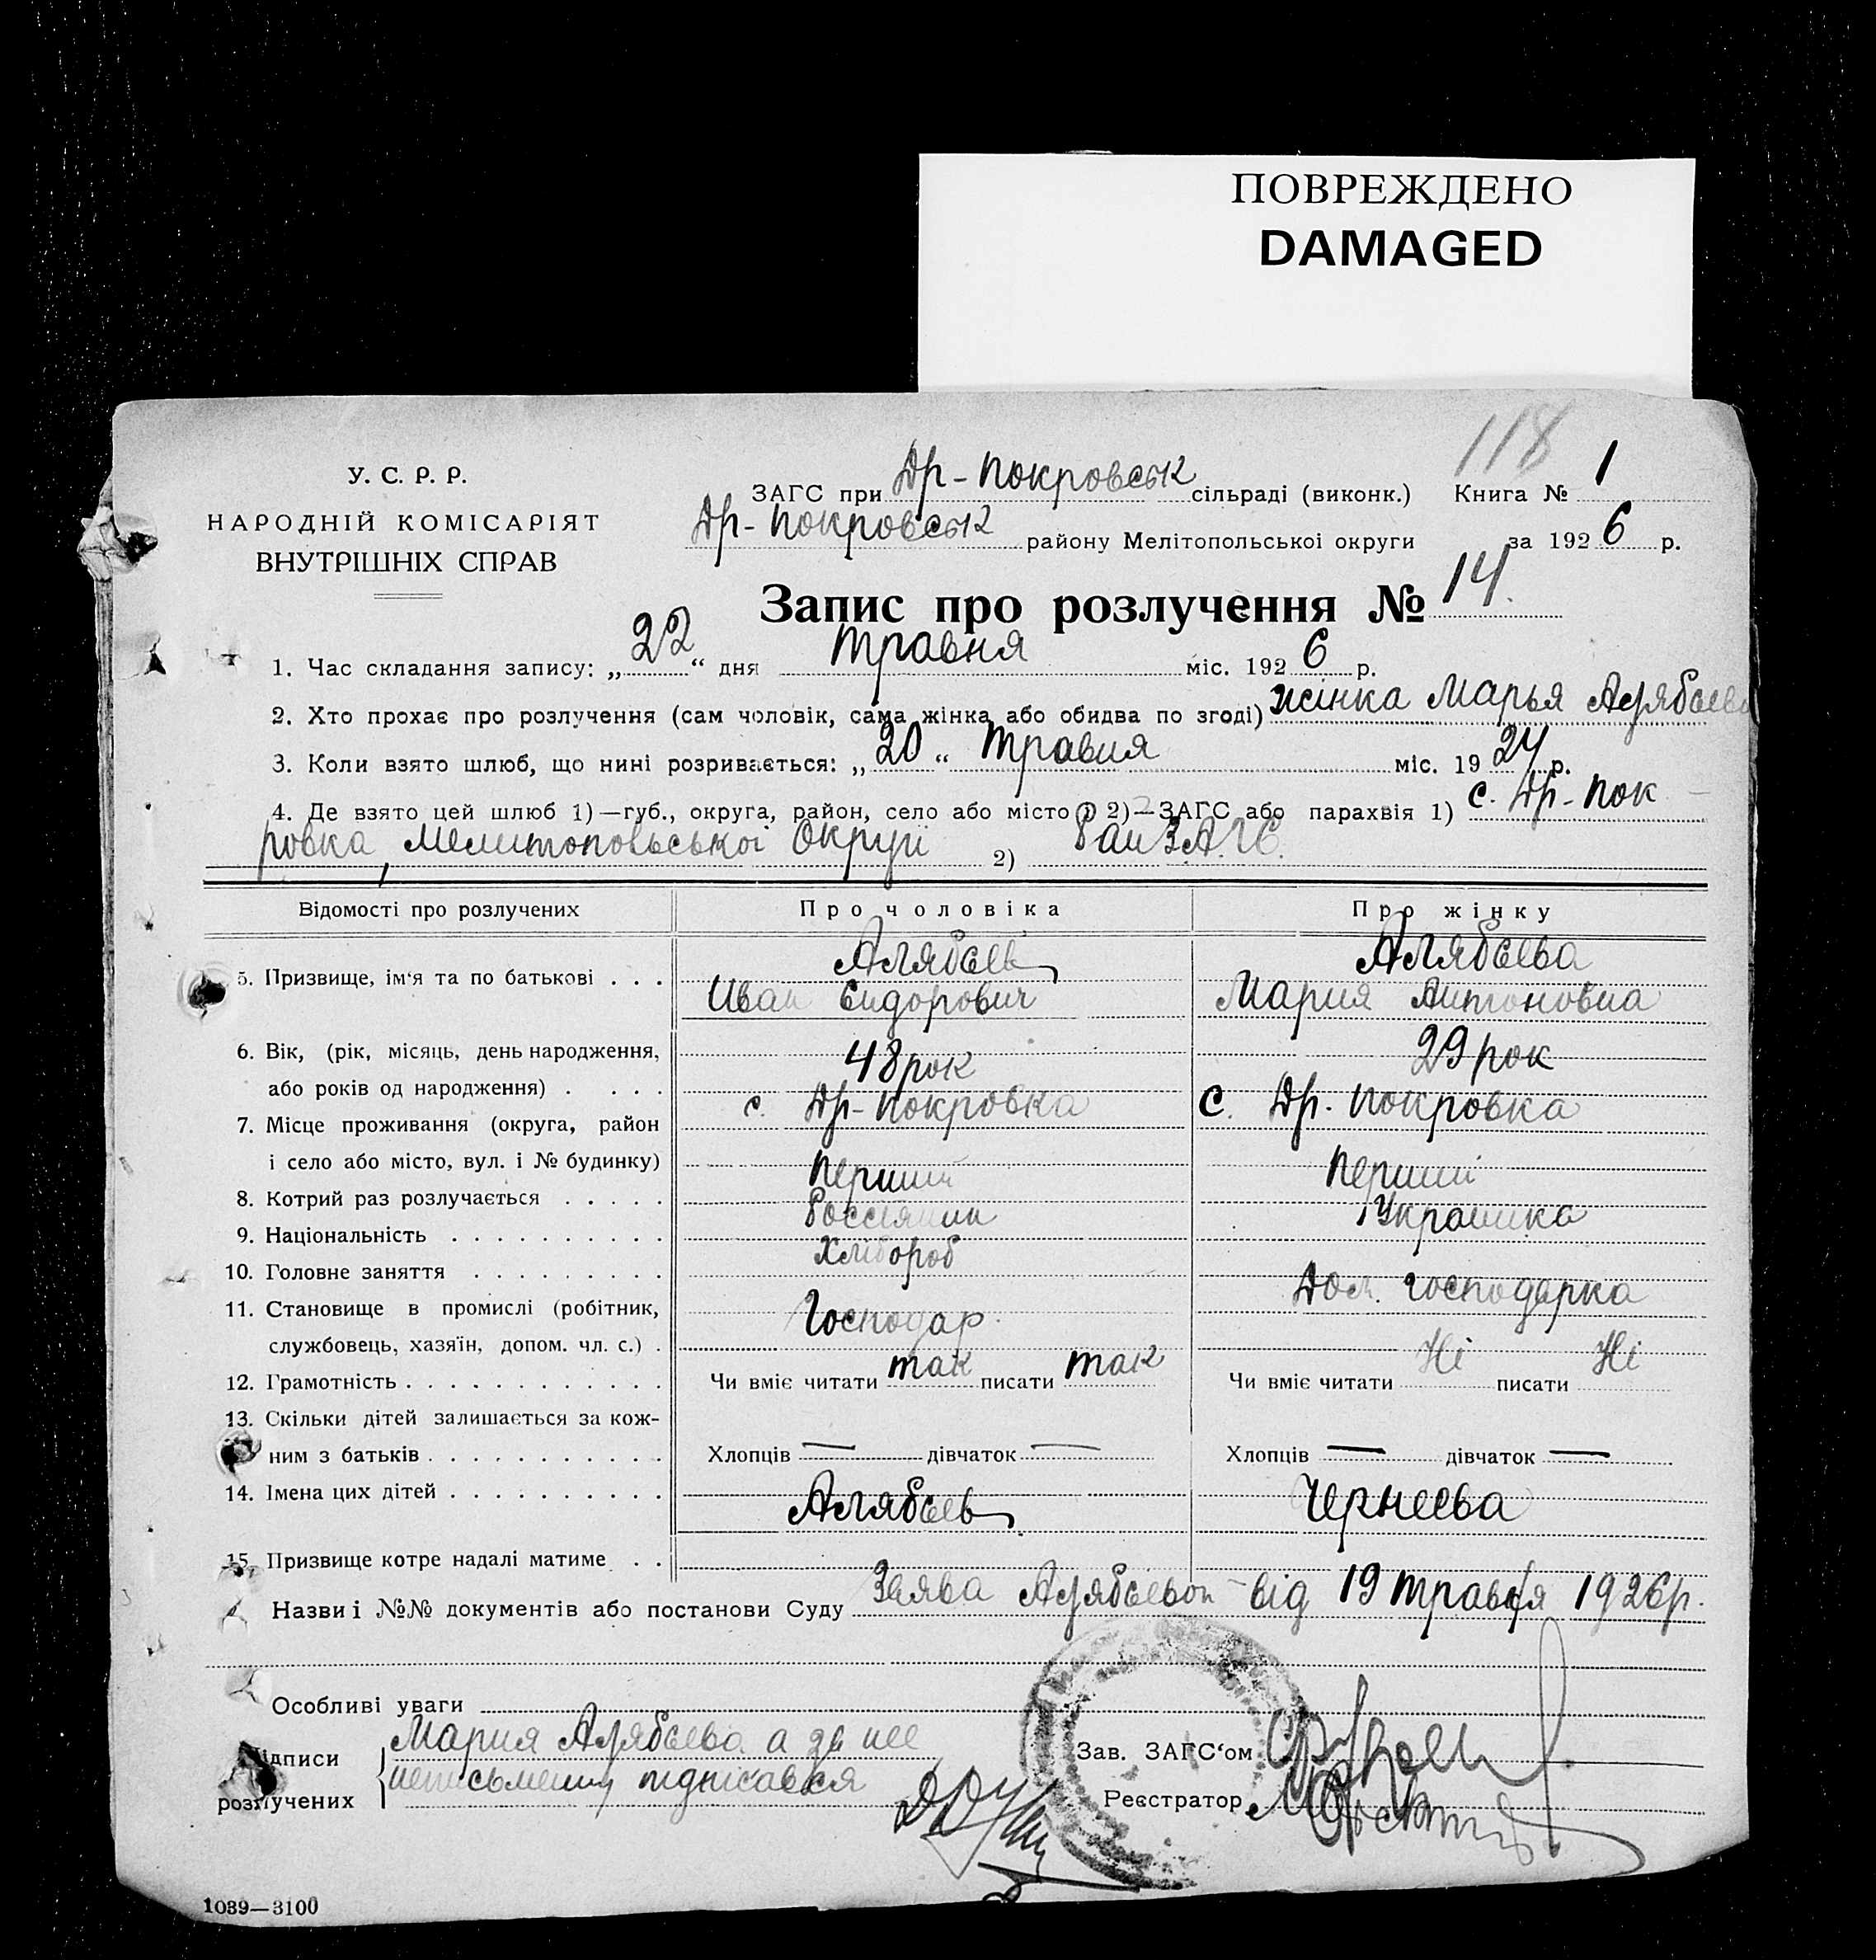 ПОВРЕЖДЕНО
DAMAGED
118
У. С. Р. Р.
НАРОДНІЙ КОМІСАРІЯТ
ВНУТРІШНІХ СПРАВ
ЗАГС при Др-Покровськ сільраді (виконк.) Книга № 1
Др-Покровськ району Мелітопольської округи за 1926 р.
Запис про розлучення № 14.
1. Час складання запису: „22“ дня Травня міс. 1926 р.
2. Хто прохає про розлучення (сам чоловік, сама жінка або обидва по згоді) жінка Марья Алябьева
3. Коли взято шлюб, що нині розривається: „20“ Травня міс. 1924 р.
4. Де взято цей шлюб 1)—губ., округа, район, село або місто і 2)—ЗАГС або парахвія 1) с. Др-Пок-
ровка, Мелитопольської Округи 2) РайЗАГС.
Відомості про розлучених Про чоловіка Про жінку
5. Призвище, ім‘я та по батькові . . . Алябьев Алябьева
Иван Сидорович Мария Антоновна
6. Вік, (рік, місяць, день народження, 48 рок 29 рок
або років од народження) . . . .
7. Місце проживання (округа, район с. Др-Покровка с. Др. Покровка
і село або місто, вул. і № будинку)
8. Котрий раз розлучається . . . . . Перший Перший
9. Національність . . . . . . . . . . Россіянин Украинка
10. Головне заняття . . . . . . . . . Хлібороб
11. Становище в промислі (робітник, Господар. Дом. господарка
службовець, хазяїн, допом. чл. с.) .
12. Грамотність . . . . . . . . . . . . Чи вміє читати так писати так Чи вміє читати Ні писати Ні
13. Скільки дітей залишається за кож-
ним з батьків . . . . . . . . . . . Хлопців — дівчаток — Хлопців — дівчаток —
14. Імена цих дітей . . . . . . . . . .
Алябьев Чернеева
15. Призвище котре надалі матиме . .
Назви і №№ документів або постанови Суду Заява Алябьевой від 19 Травня 1926р.
Особливі уваги
Підписи Мария Алябьева а за нее
розлучених неписьменну підписався
Зав. ЗАГС‘ом
Реєстратор
1039—3100